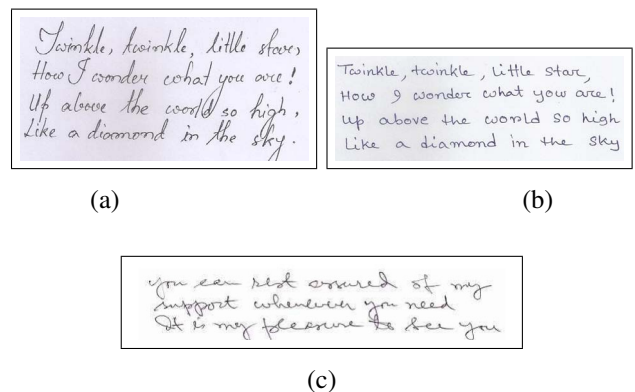 Twinkle, twinkle, little star,
How I wonder what you are!
Up above the world so high,
Like a diamond in the sky.
(a)
Twinkle, twinkle, Little star,
How I wonder what you are!
Up above the world so high
Like a diamond in the sky
(b)
you can rest assured of my
support whenever you need
It is my pleasure to see you
(c)